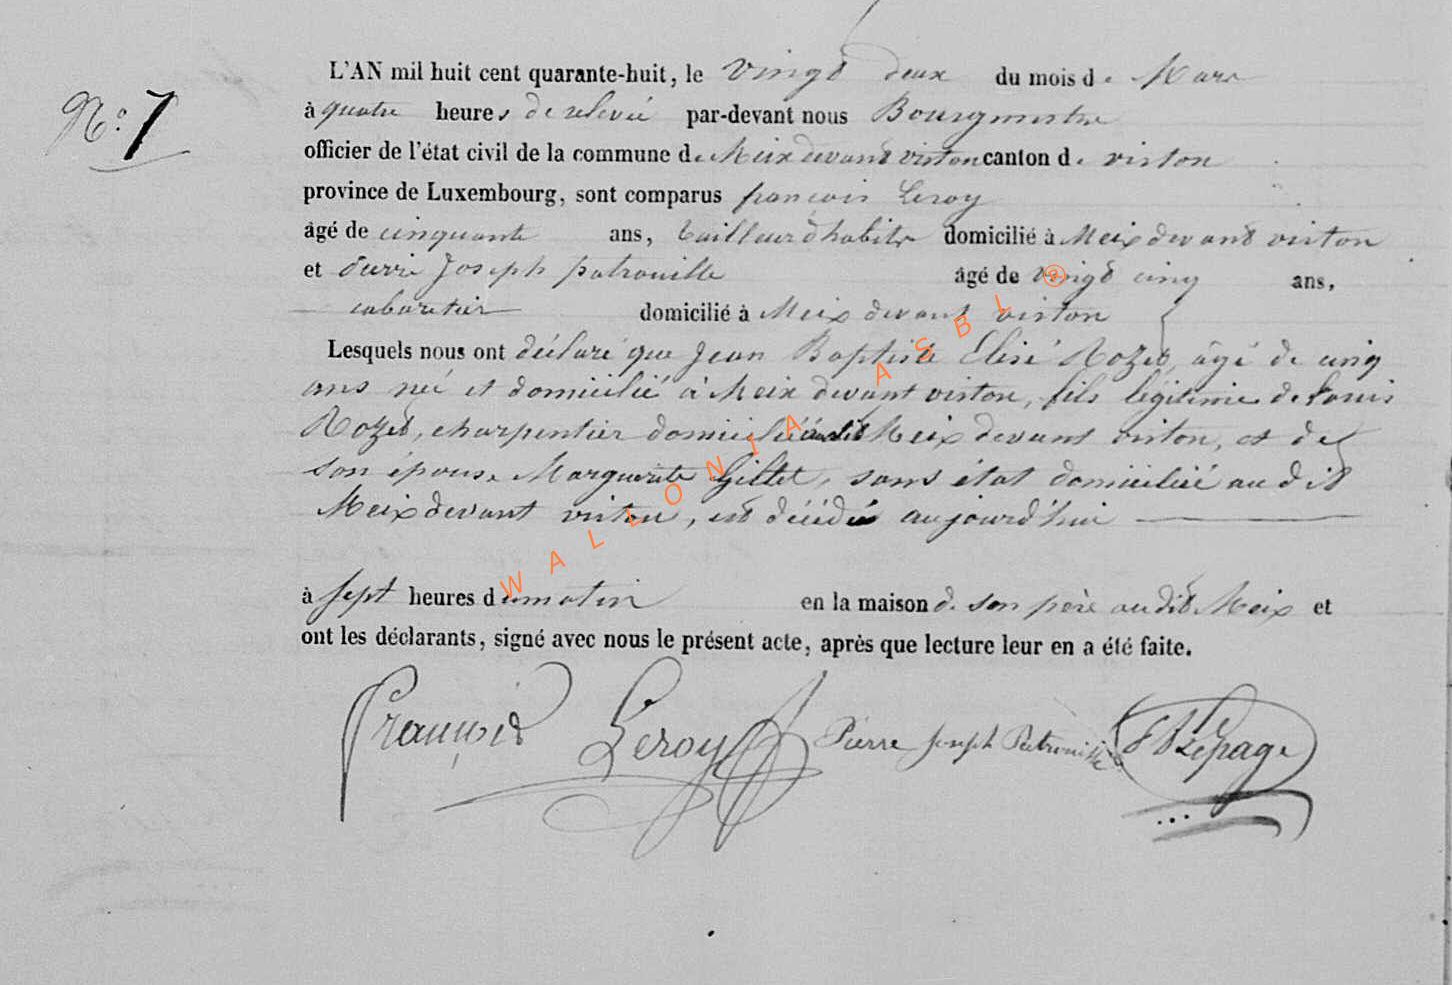 N.° 7
L'AN mil huit cent quarante-huit, le vingt deux du mois de Mars
à quatre heures de relevée par-devant nous Bourgmestre
officier de l'état civil de la commune de Meix devant virton canton de virton
province de Luxembourg, sont comparus françois Leroy
âgé de cinquante ans, tailleur d'habits domicilié à Meix devant virton
et pierre Joseph patrouille âgé de vingt cinq ans,
cabaretier domicilié à Meix devant virton
Lesquels nous ont déclaré que Jean Baptiste Elisé Rozet, âgé de cinq
ans né et domicilié à Meix devant virton, fils légitime de Louis
Rozet, charpentier domicilié audit Meix devant virton, et de
son épouse Marguerite Gillet, sans état domiciliée au dit
Meix devant virton, est décédé aujourd'hui
à sept heures du matin en la maison de son père audit Meix et
ont les déclarants, signé avec nous le présent acte, après que lecture leur en a été faite.
François Leroy Pierre Joseph Patrouille Lepage
WALLONIA ASBL ®